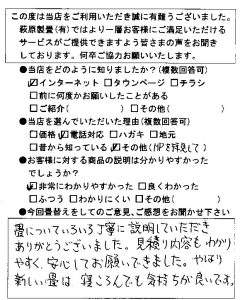 この度は当店をご利用いただき誠に有難うございました。
萩原製畳(有)ではより一層お客様にご満足いただける
サービスがご提供できますよう皆さまの声をお聞き
しております。何卒ご協力お願いいたします。
●当店をどのように知りましたか？(複数回答可)
☑インターネット □タウンページ □チラシ
□前に何度かお願いしたことがある
□ご紹介( ) □その他( )
●当店を選んでいただいた理由(複数回答可)
□価格 ☑電話対応 □ハガキ □地元
□昔から知っている ☑その他(HPを拝見して)
●お客様に対する商品の説明は分かりやすかった
でしょうか？
☑非常にわかりやすかった □良くわかった
□ふつう □わかりにくい □その他( )
●今回畳替えをしてのご意見、ご感想をお聞かせ下さい
畳についていろいろ丁寧に説明していただき
ありがとうございました。見積り内容もわかり
やすく、安心してお願いできました。やはり
新しい畳は、寝ころんでも気持ちが良いです。